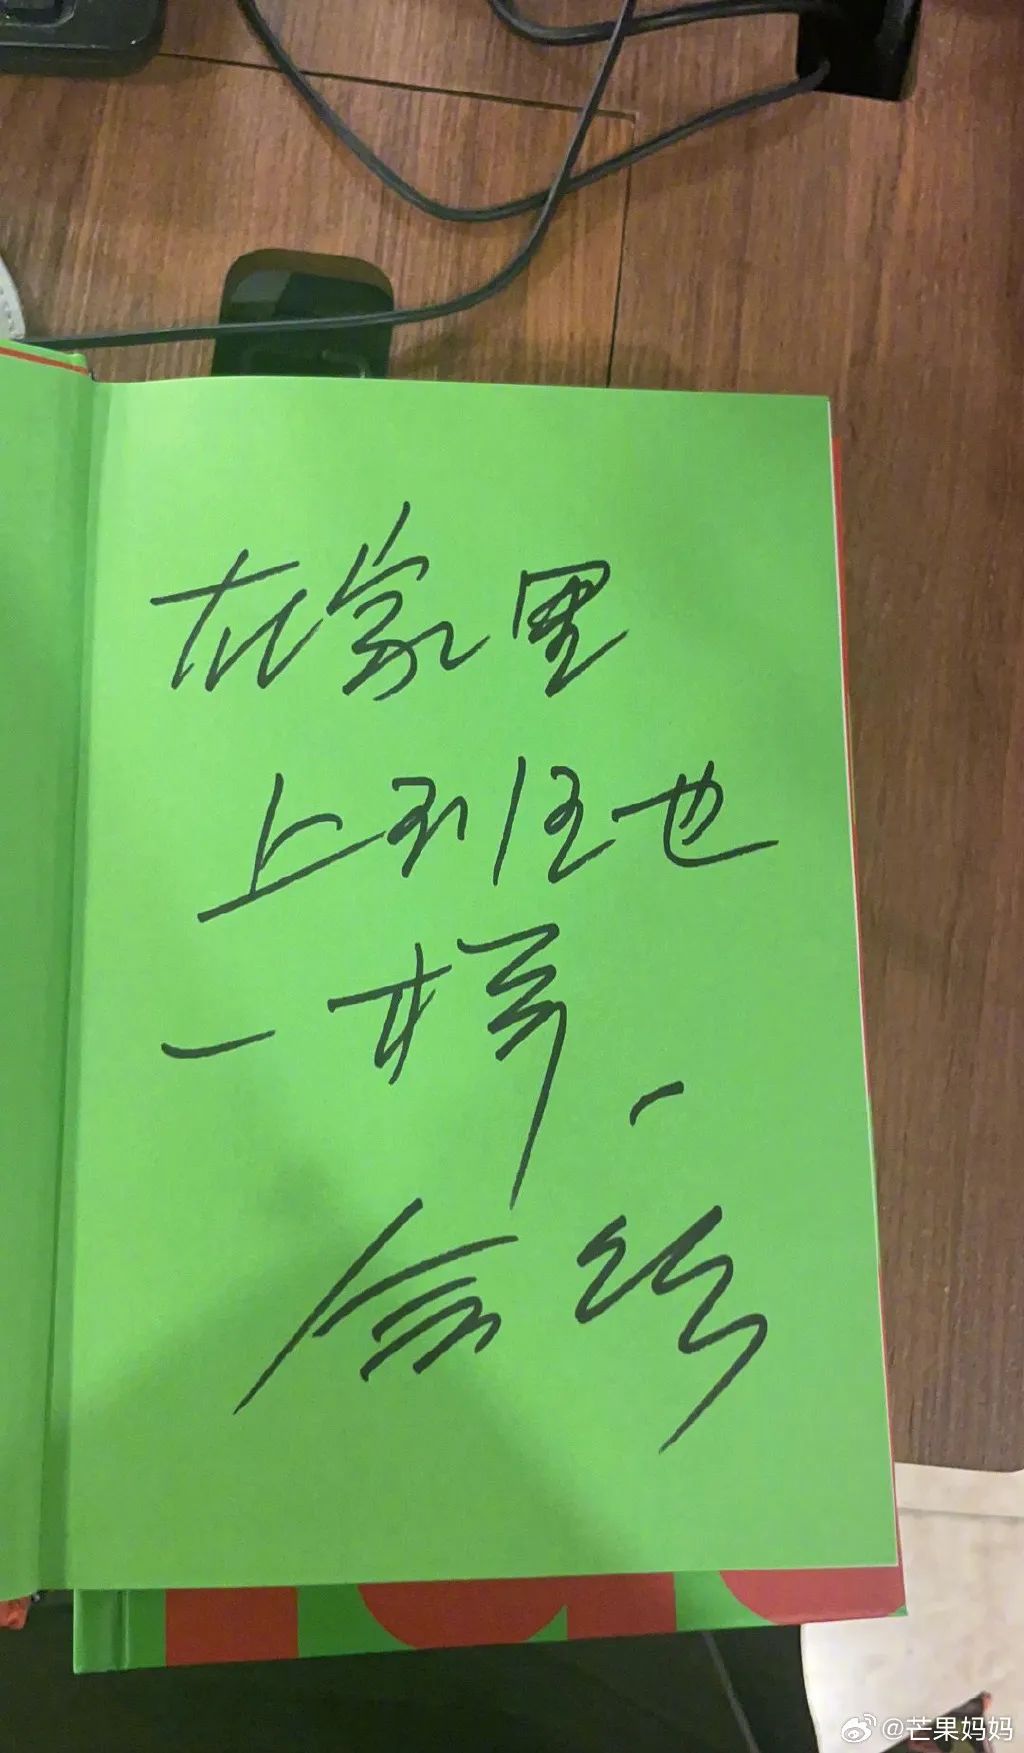 在家里
上班也
一样.
@芒果妈妈